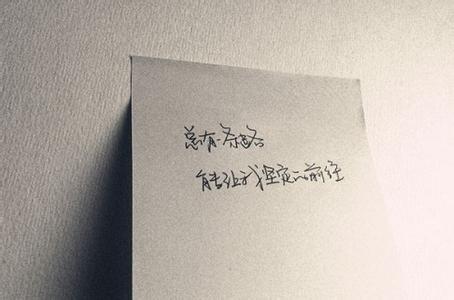 总有一条路
能让我坚定的前往